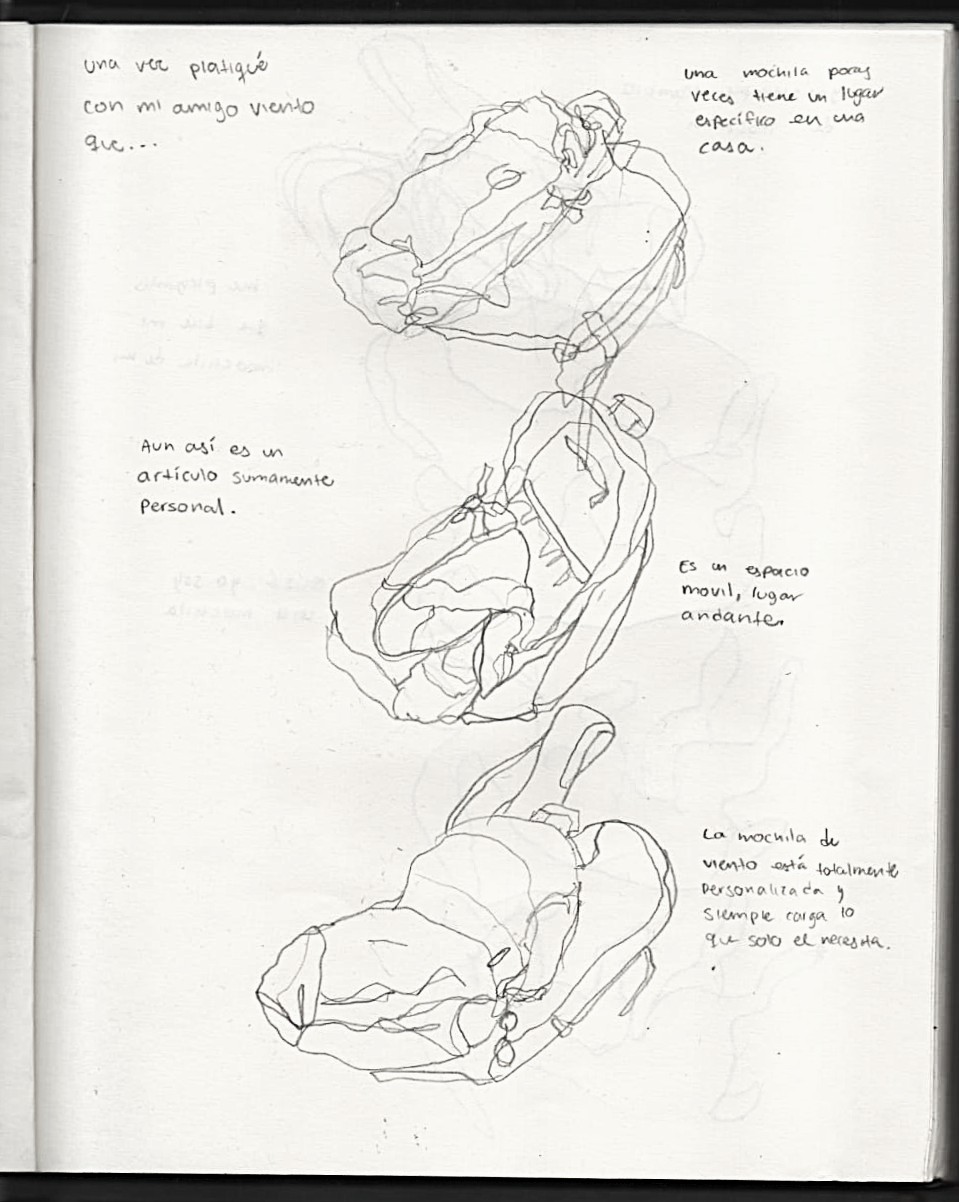 una vez platiqué
con mi amigo viento
que...
una mochila pocas
veces tiene un lugar
específico en una
casa.
Aun así es un
artículo sumamente
personal.
Es un espacio
movil, lugar
andante.
La mochila de
viento está totalmente
personalizada y
siempre carga lo
que solo el necesita.